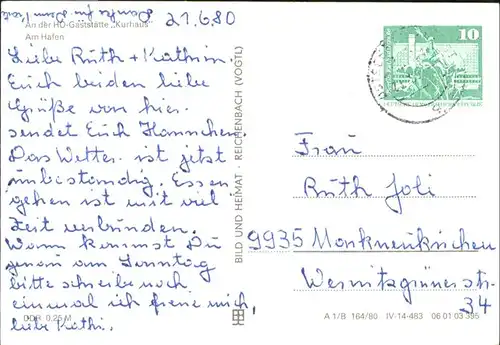 Danke für Dein Karte
21.6.80
An der HO-Gaststätte „Kurhaus"
Am Hafen
Liebe Ruth + Kathrin.
Euch beiden liebe
Grüße von hier
sendet Euch Hannchen.
Das Wetter ist jetzt
unbeständig. Essen
gehen ist mit viel
Zeit verbunden.
Wann kommst Du
genau am Sonntag
bitte schreibe noch
einmal ich freue mich,
liebe Kathi.
DDR 0,25 M
BILD UND HEIMAT · REICHENBACH (VOGTL)
10
Frau
Ruth Joli
9935 Markneukirchen
Wernitzgrünerstr.
34
A 1/B 164/80 IV-14-483 06 01 03 395